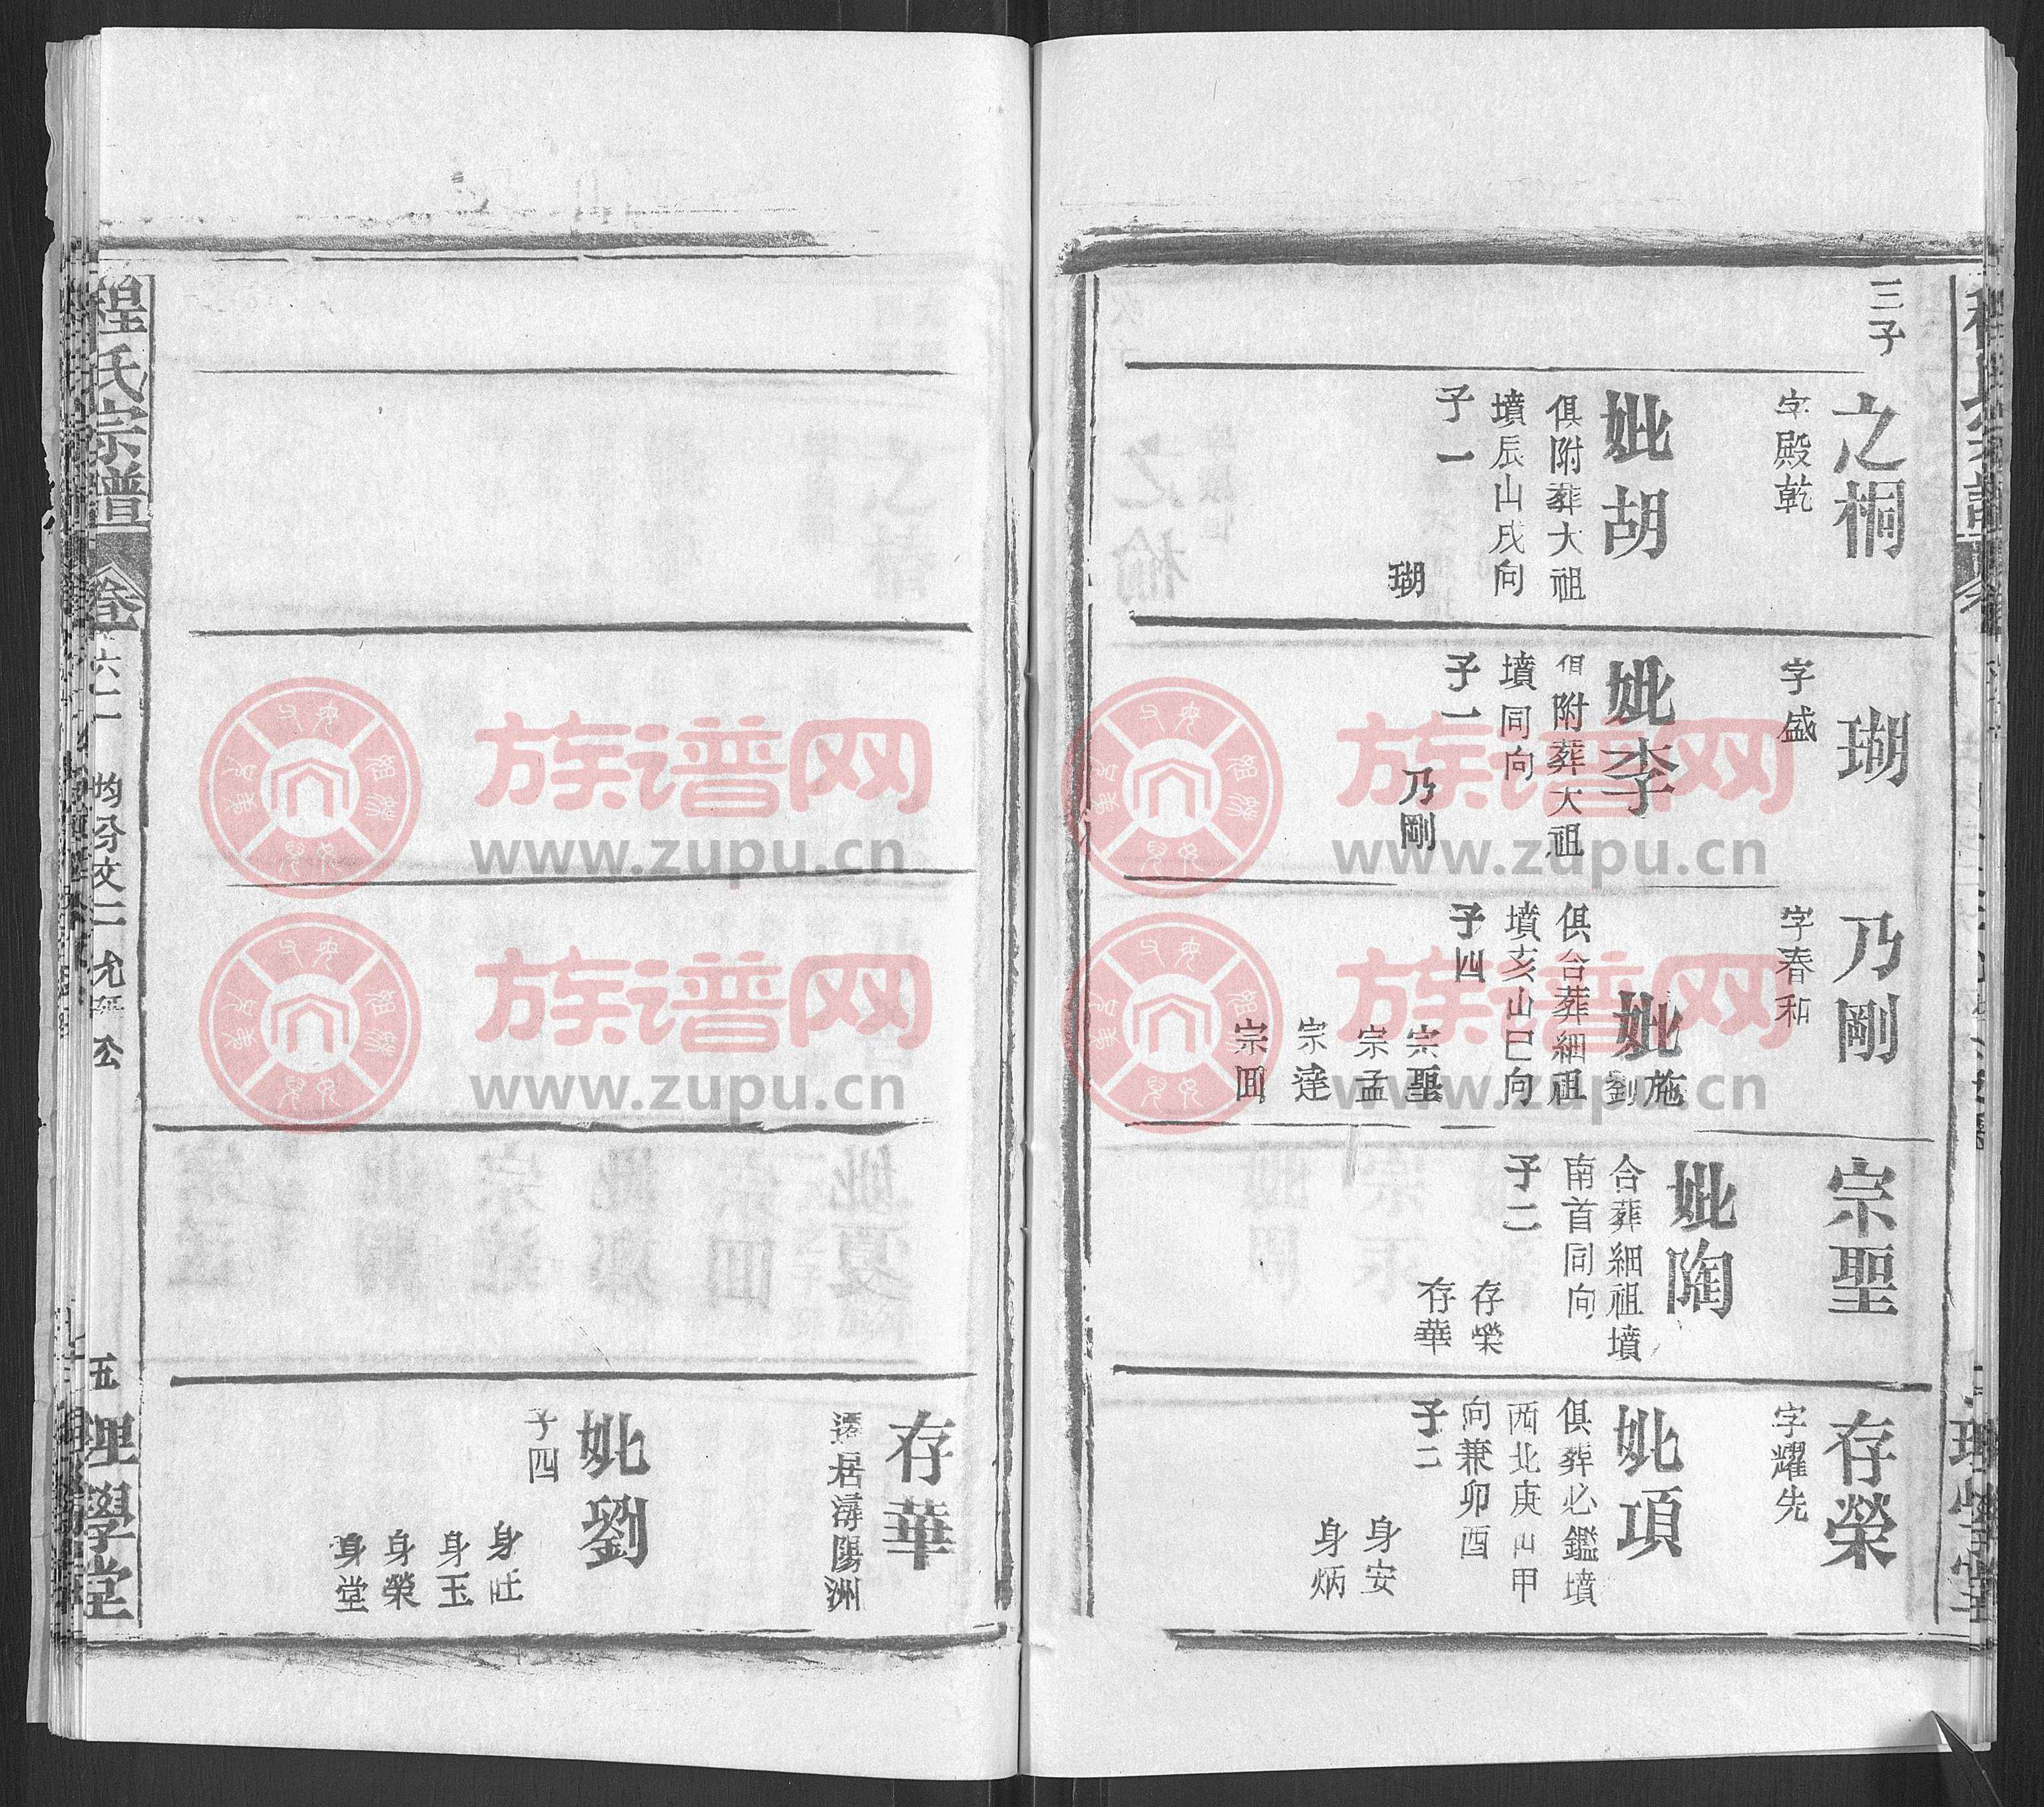 三子
之桐
字殿乾
妣胡
俱附葬大祖
墳辰山戌向
子一
瑚
瑚
字盛
妣李
俱附葬大祖
墳同向
子一
乃剛
乃剛
字春和
妣施劉
俱合葬細祖
墳亥山巳向
子四
宗聖
宗孟
宗達
宗回
宗聖
妣陶
合葬細祖墳
南首同向
子二
存榮
存華
存榮
字耀先
妣項
俱葬必鑑墳
西北庚山甲
向兼卯酉
子二
身安
身炳
存華
遷居潯陽洲
妣劉
子四
身旺
身玉
身榮
身堂
程氏宗譜
卷六二
均分文二允公
五
理學堂
族谱网
www.zupu.cn
族谱网
www.zupu.cn
族谱网
www.zupu.cn
族谱网
www.zupu.cn